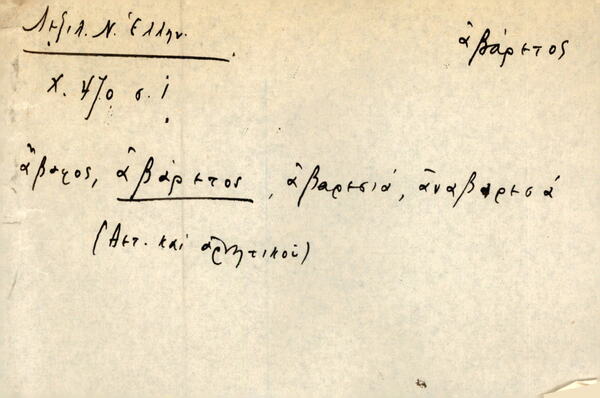 Λεξιλ. Ν. Ἑλλην.
ἀβάρετος
Χ. 470 σ. 1
ἄβαρος, ἀβάρετος, ἀβαρεσιά, ἀναβαρεσά
(Λετ. καὶ ἀρνητικοί)